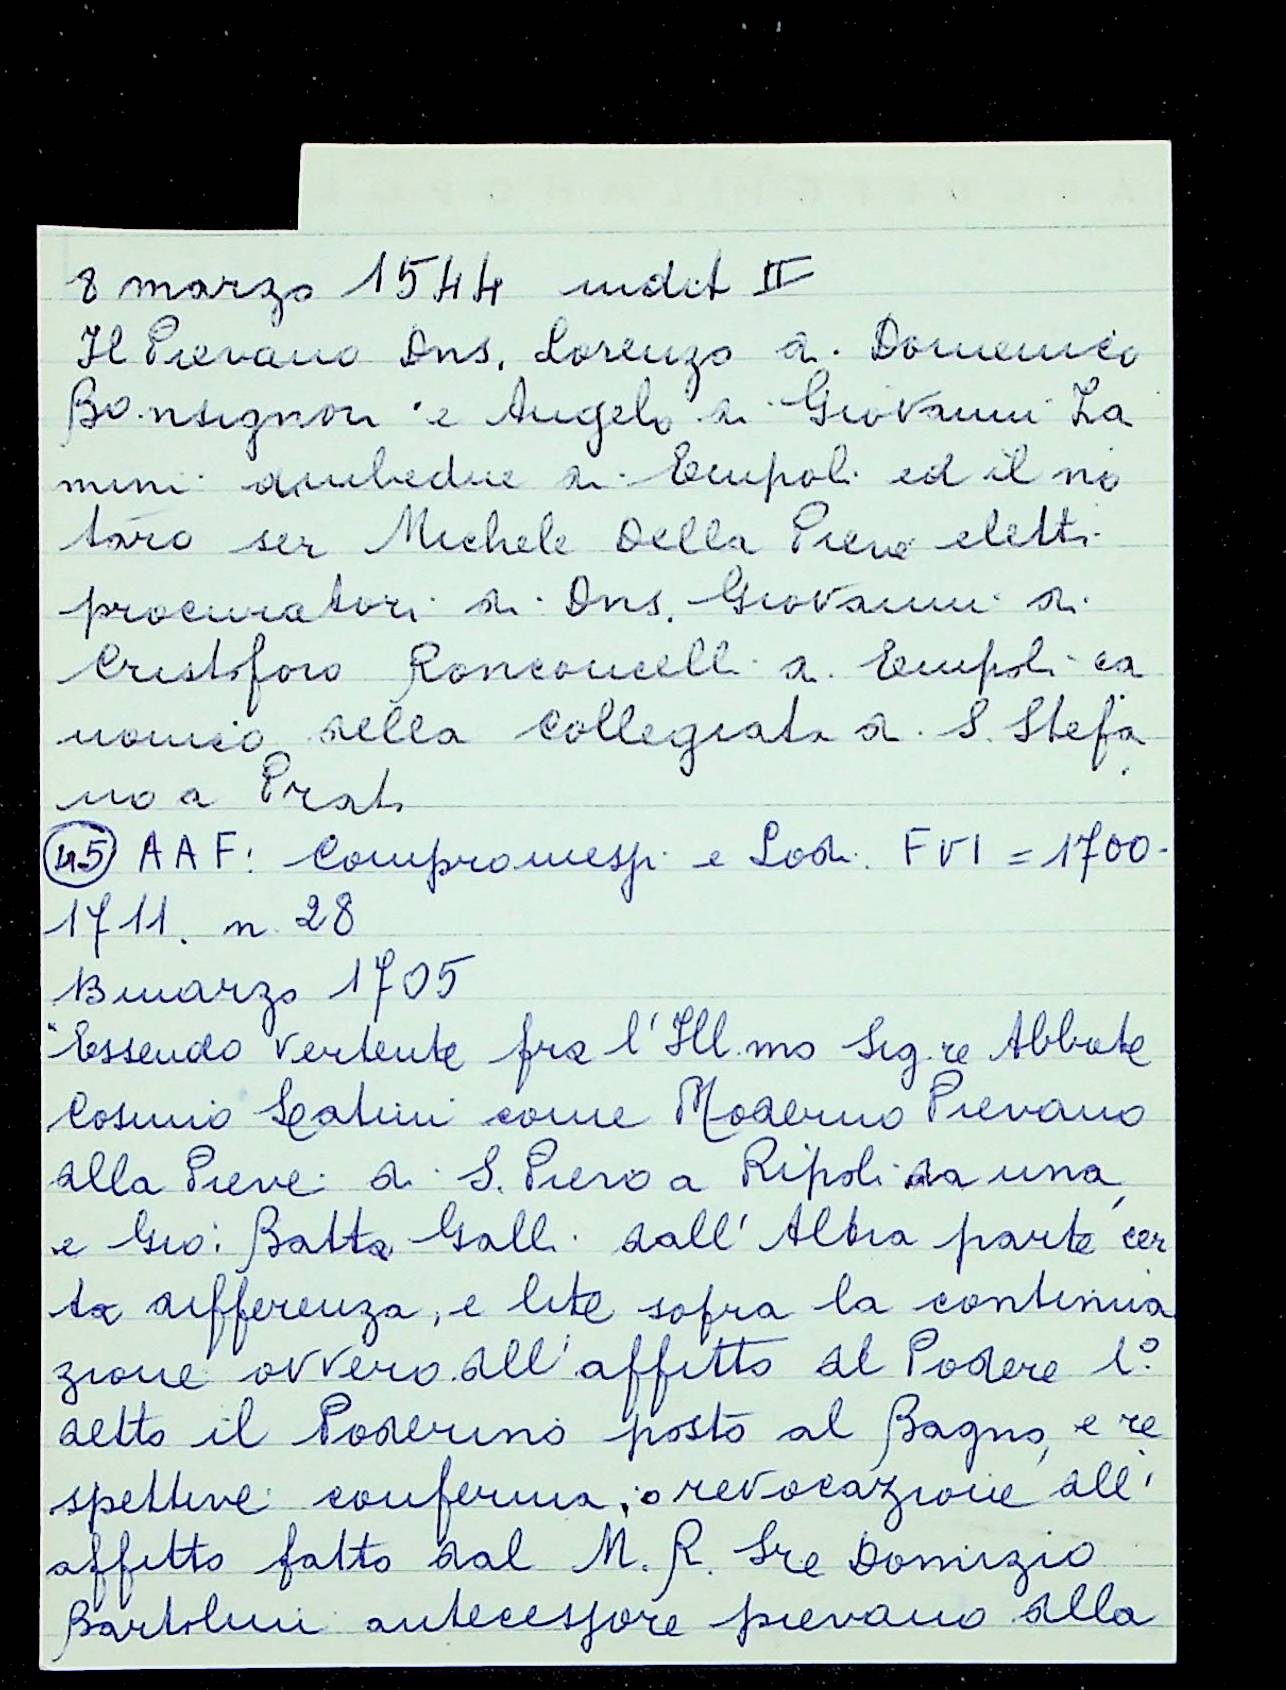 8 marzo 1544 indict II
Il Pievano Dns. Lorenzo di Domenico
Bonsignori e Angelo di Giovanni La
mini ambedue di Empoli ed il no
taro ser Michele Della Pieve eletti
procuratori di Dns. Giovanni di
Cristoforo Ronconcelli di Empoli ca
nonico della Collegiata di S. Stefa
no a Prato
45 AAF: Compromessi e Lodi. F VI = 1700-
1711. n. 28
13 marzo 1705
"Essendo vertente fra l'Ill.mo Sig.re Abbate
Cosimo Latini come Moderno Pievano
della Pieve di S. Piero a Ripoli da una,
e Gio: Batta Galli dall'Altra parte cer
ta differenza, e lite sopra la continua
zione ovvero dell'affitto del Podere l.º
detto il Poderino posto al Bagno, e re
spettive conferma, o revocazione dell'
affitto fatto dal M. R. Sre Domizio
Bartolini antecessore pievano della